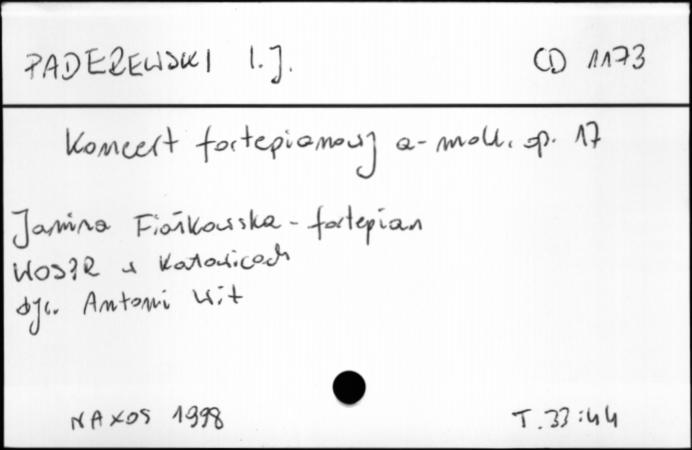 PADEREWSKI I.J. CD 1173
Koncert fortepianowy a-moll. op. 17
Janina Fiałkowska - fortepian
WOSPR w Katowicach
dyr. Antoni Wit
NAXOS 1998 T. 33:44